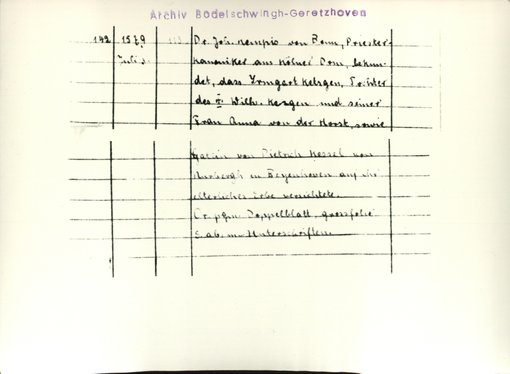 Archiv Bodelschwingh-Geretzhoven
142 1579 113. Dr. Joh. Kempis von Bonn, Priester-
Juli 3. kanoniker am Kölner Dom, bekun-
det, dass Irmgart Ketzgen, Tochter
des † Wilh. Ketzgen und seiner
Frau Anna von der Horst, sowie
Gattin von Dietrich Kessel von
in auf ihr
elterliches Erbe verzichtete.
Or. pgm. Doppelblatt, grossfolio
S. ab. m. Unterschriften.